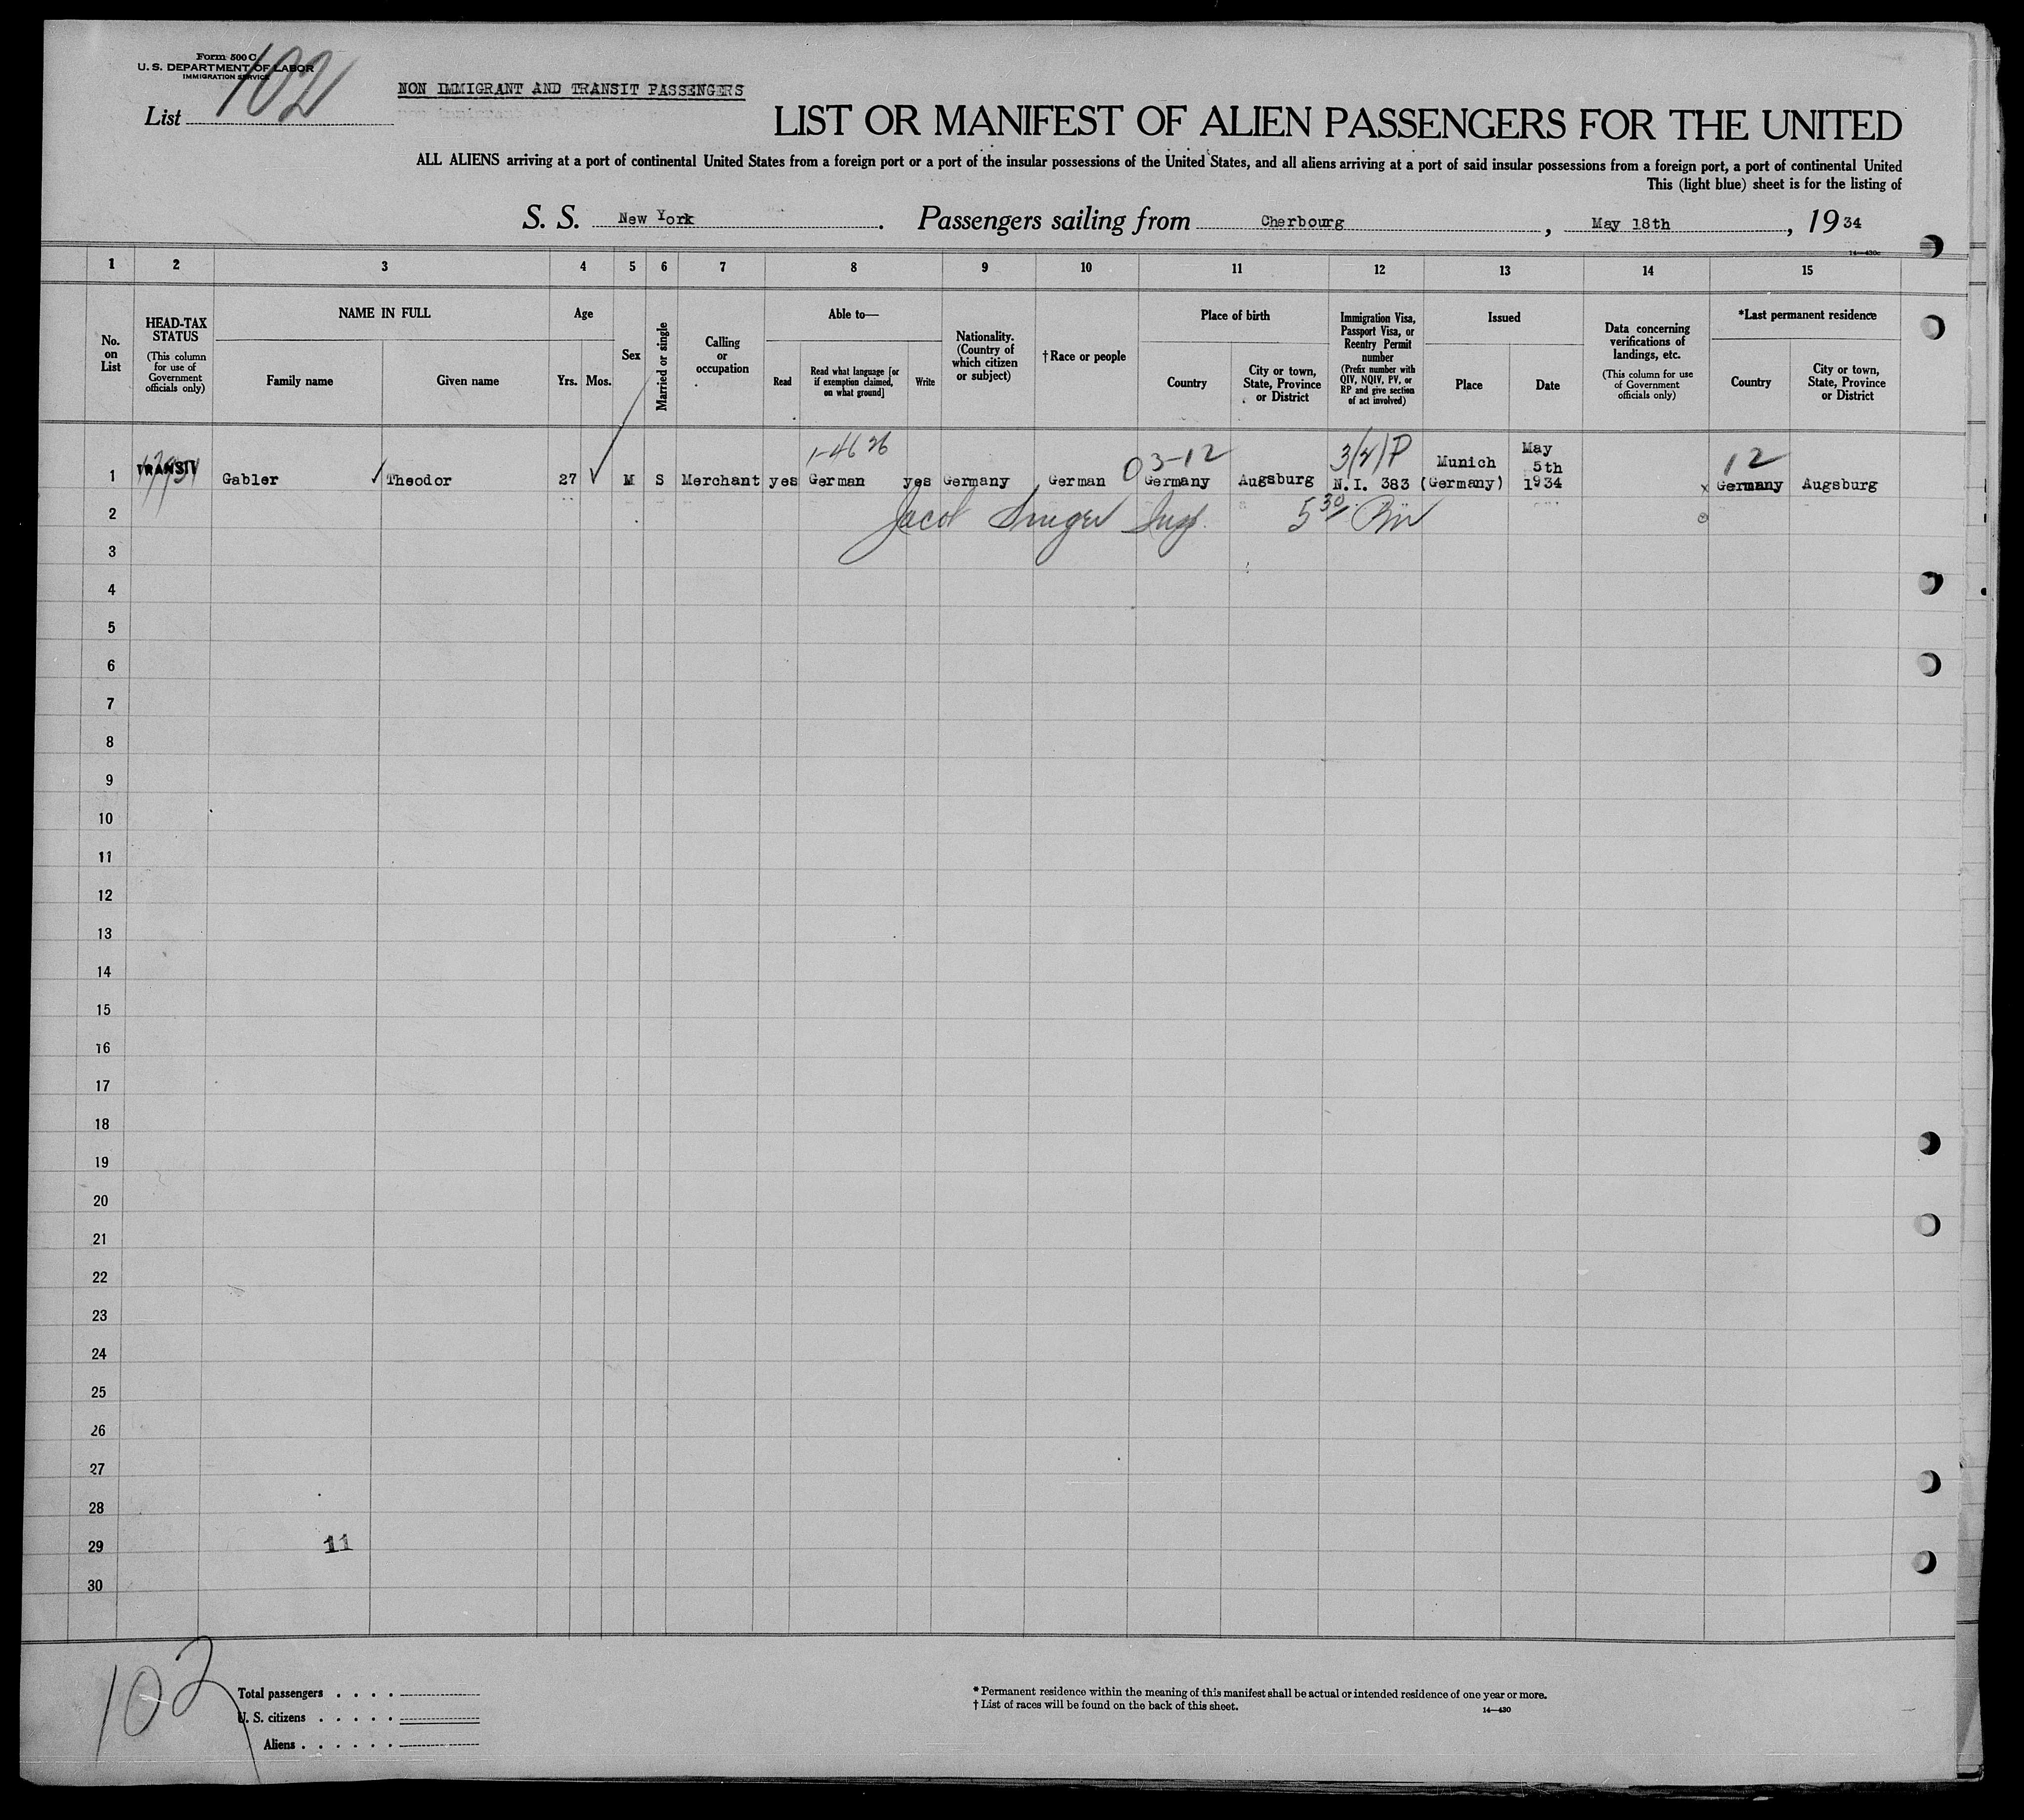 Form 500 C
U. S. DEPARTMENT OF LABOR
IMMIGRATION SERVICE
List 102
NON IMMIGRANT AND TRANSIT PASSENGERS
LIST OR MANIFEST OF ALIEN PASSENGERS FOR THE UNITED
ALL ALIENS arriving at a port of continental United States from a foreign port or a port of the insular possessions of the United States, and all aliens arriving at a port of said insular possessions from a foreign port, a port of continental United
This (light blue) sheet is for the listing of
S. S. New York. Passengers sailing from Cherbourg, May 18th, 1934
14—430c
1 2 3 4 5 6 7 8 9 10 11 12 13 14 15
No. on List
HEAD-TAX STATUS
(This column for use of Government officials only)
NAME IN FULL
Family name
Given name
Age
Yrs. Mos.
Sex
Married or single
Calling or occupation
Able to—
Read
Read what language [or if exemption claimed, on what ground]
Write
Nationality. (Country of which citizen or subject)
†Race or people
Place of birth
Country
City or town, State, Province or District
Immigration Visa, Passport Visa, or Reentry Permit number
(Prefix number with QIV, NQIV, PV, or RP and give section of act involved)
Issued
Place
Date
Data concerning verifications of landings, etc.
(This column for use of Government officials only)
*Last permanent residence
Country
City or town, State, Province or District
03-12 3(4)P 12
1 TRANSIT Gabler Theodor 27 M S Merchant yes German yes Germany German Germany Augsburg N.I. 383 Munich (Germany) May 5th 1934 x Germany Augsburg
2 Jacob Singer Insp. 5 30
3
4
5
6
7
8
9
10
11
12
13
14
15
16
17
18
19
20
21
22
23
24
25
26
27
28
29 11
30
102
Total passengers . . . .
U. S. citizens . . . . .
Aliens . . . . . .
* Permanent residence within the meaning of this manifest shall be actual or intended residence of one year or more.
† List of races will be found on the back of this sheet.
14—430